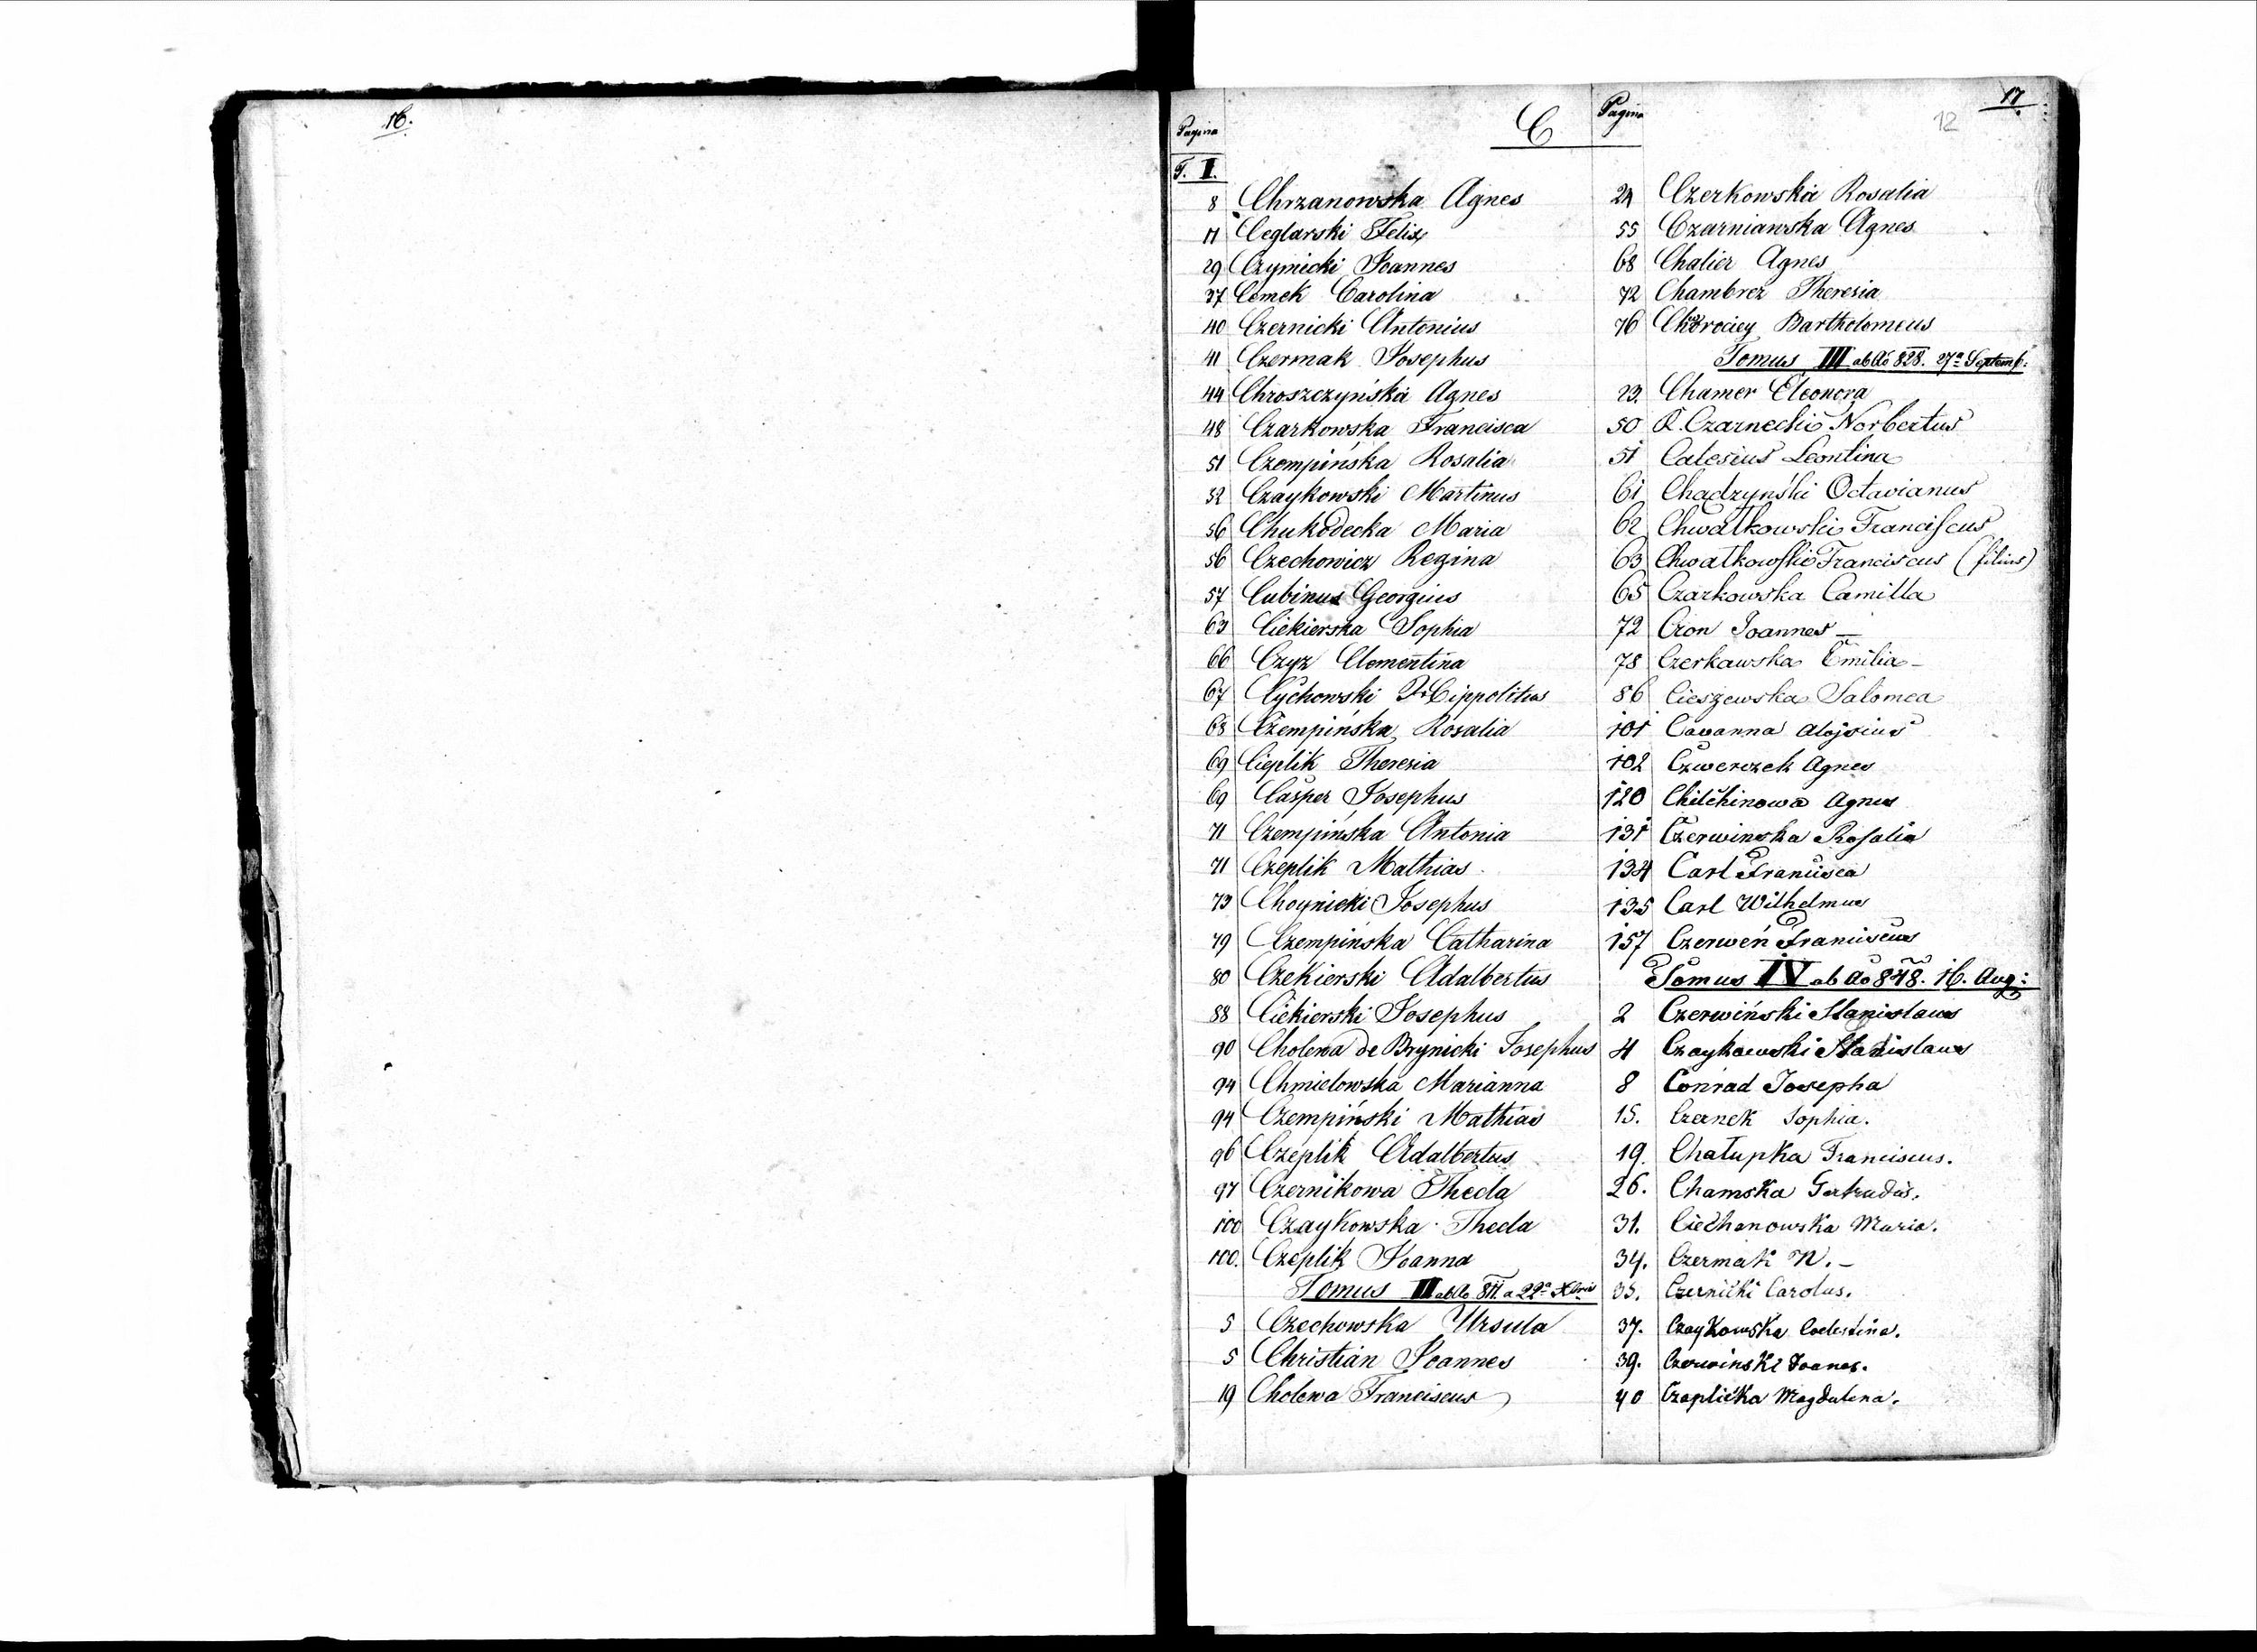 16.
17
12
C
Pagina
T. I.
8 Chrzanowska Agnes
11 Ceglarski Felix
29 Czynicki Joannes
37 Comek Carolina
40 Czernicki Antonius
41 Czermak Josephus
44 Chroszczyńska Agnes
48 Czarkowska Francisca
51 Czempińska Rosalia
52 Czaykowski Martinus
56 Chukodecka Maria
56 Czechowicz Regina
57 Cubinus Georgius
63 Ciekierska Sophia
66 Czyz Clementina
67 Cychowski Hippolitus
68 Czempińska Rosalia
69 Cieplik Theresia
69 Casper Josephus
71 Czempińska Antonia
71 Czeplik Mathias
73 Choynicki Josephus
79 Czempińska Catharina
80 Czekierski Adalbertus
88 Ciekierski Josephus
90 Cholewa de Brynicki Josephus
94 Chmielowska Marianna
94 Czempiński Mathias
96 Czeplik Adalbertus
97 Czernikowa Thecla
100 Czaykowska Thecla
100. Czeplik Joanna
Tomus II ab Ao 811. a 22a Xbris
5 Czechowska Ursula
5 Christian Joannes
19 Cholewa Franciscus
Pagina
24 Czerkowska Rosalia
55 Czarniawska Agnes
68 Chalier Agnes
72 Chambrez Theresia
76 Bartholomeus
Tomus III ab Ao 828. 27a Septemb:
23. Chamer Eleonora
50 R. Czarnecki Norbertus
51 Calesius Leontina
61 Chądzyński Octavianus
62 Chwałkowski Franciscus
63 Chwałkowski Franciscus (filius)
65 Czarkowska Camilla
72 Cron Joannes —
78 Czerkawska Emilia —
86 Cieszewska Salomea
101 Cavanna Alojsius
102 Czwerczek Agnes
120 Chilchinowa Agnes
131 Czerwinska Rosalia
134 Carl Francisca
135 Carl Wilhelmus
157 Czerweń Franciscus
Tomus IV ab Ao 848. 16. Aug:
2 Czerwiński Stanislaus
4 Czaykowski Stanislaus
8 Conrad Josepha
15. Czernek Sophia.
19. Chałupka Franciscus.
26. Chamska Gertrudis.
31. Ciechanowska Maria.
34. Czermak N. —
35. Czernicki Carolus.
37. Czaykowska Coelestina.
39. Czerwinski Joanes.
40 Czaplicka Magdalena.